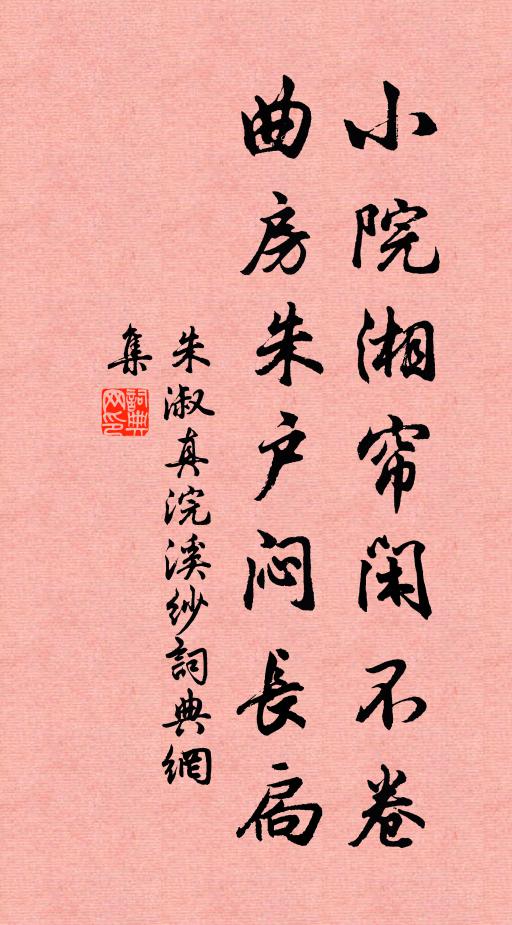 小院湘帘闲不卷
曲房朱户闷長扃
朱淑真浣溪紗詞典網
集
詞典
网印